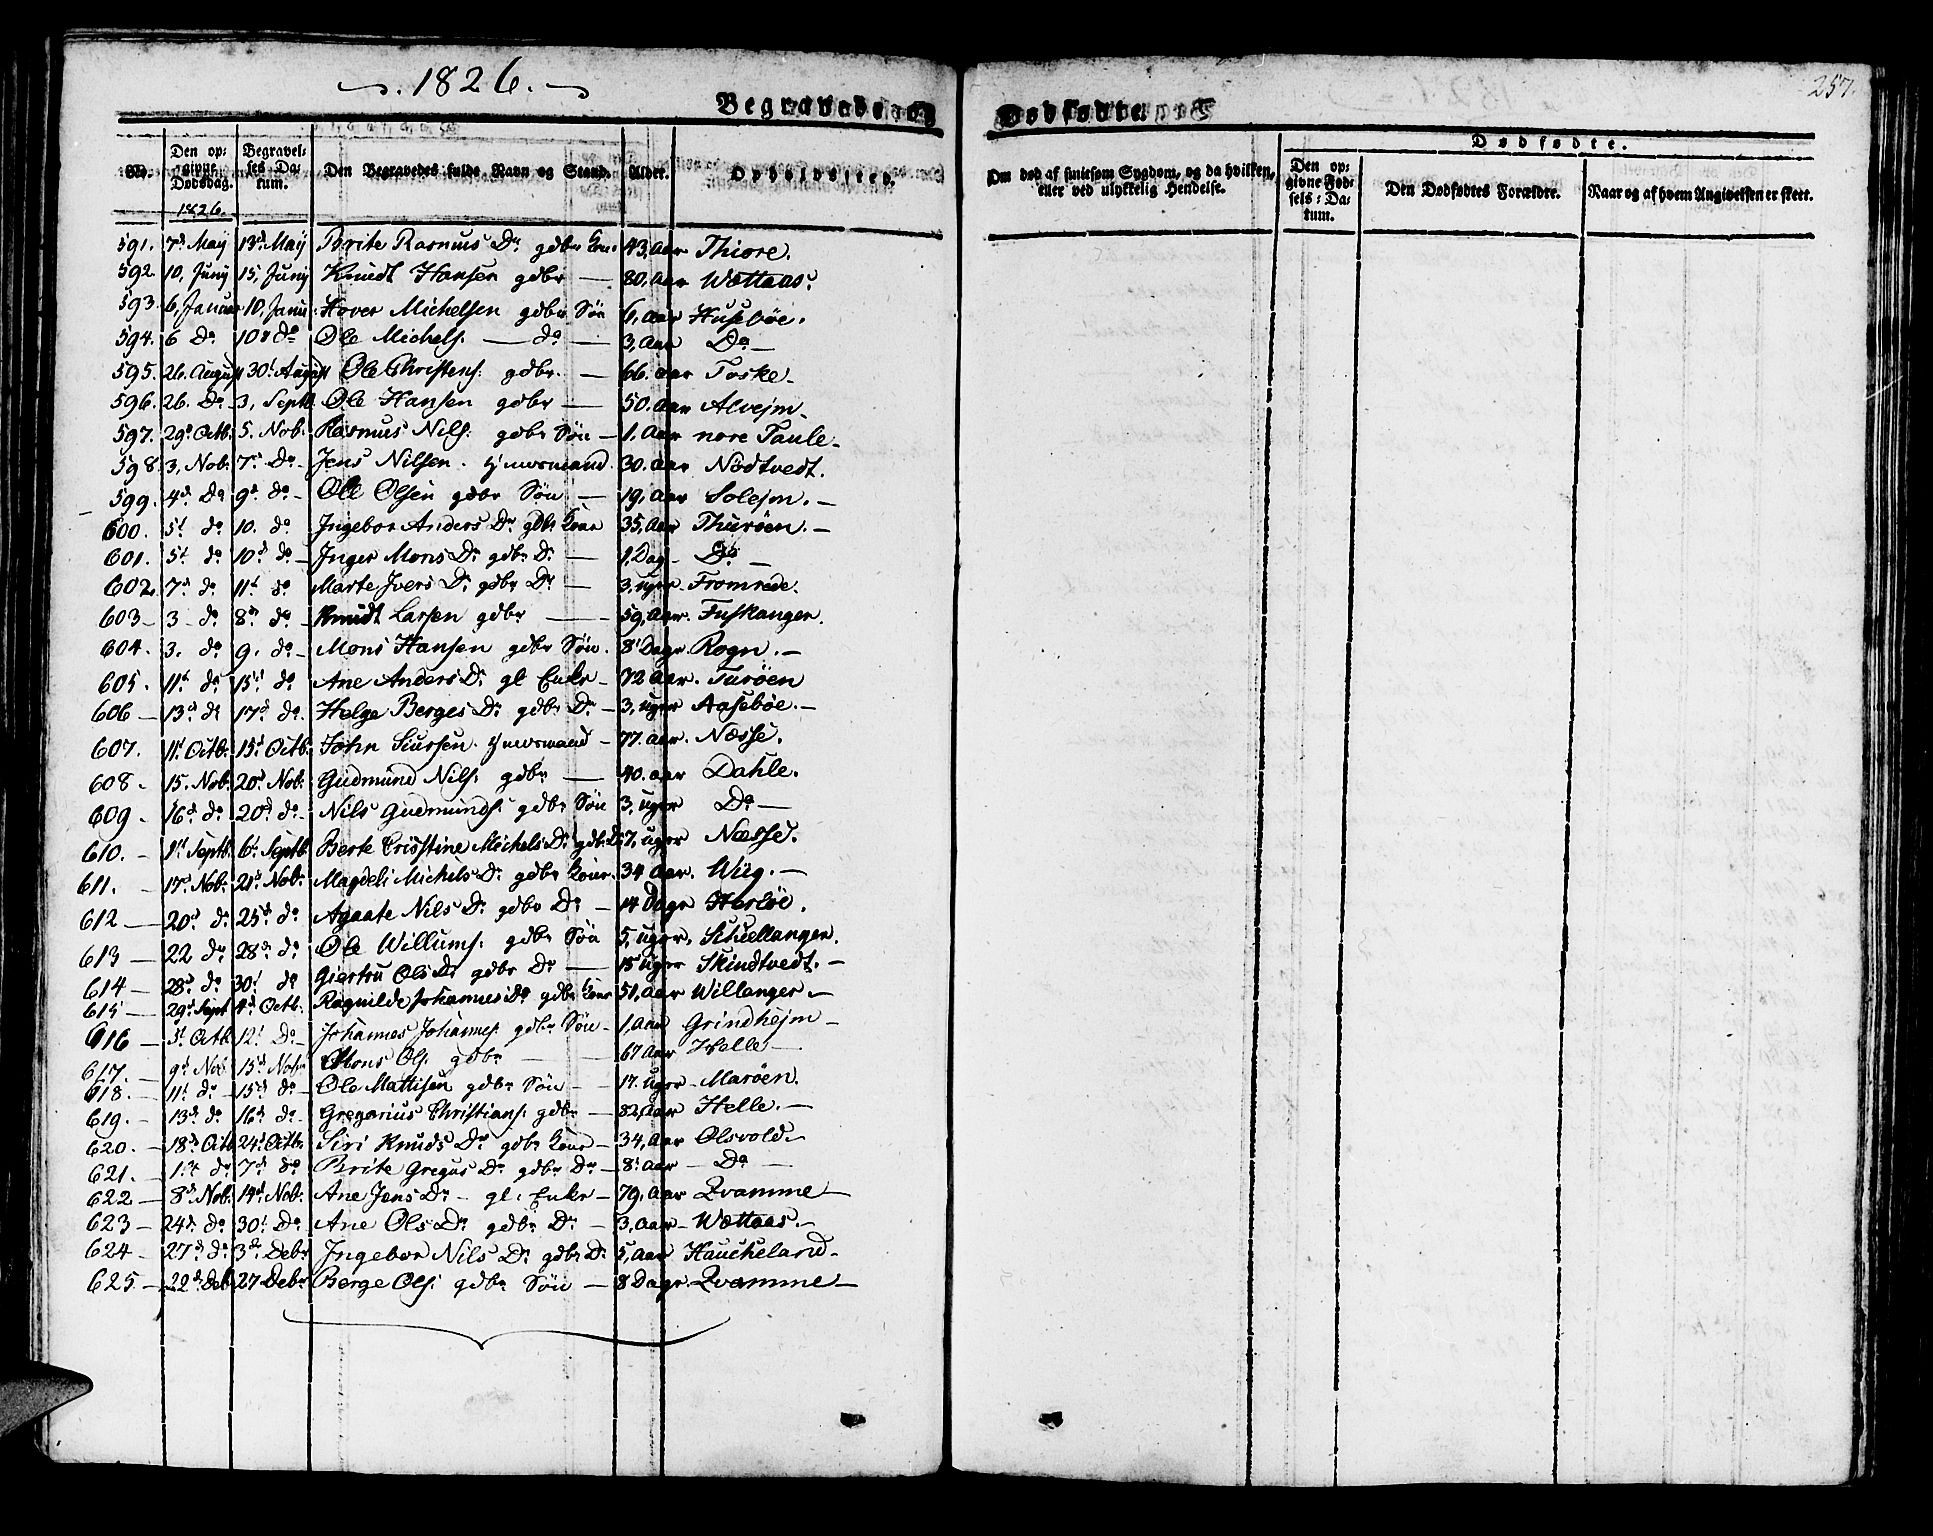 1826.
257.
Begravede og Dødfødte
No. | Den opgivne Dødsdag. | Begravelses Datum. | Den Begravedes fulde Navn og Stand. | Alder. | Opholdssted. | Om død af smitsom Sygdom, og da hvilken, eller ved ulykkelig Hendelse. | Dødfødte. Den opgivne Fødsels-Datum. | Den Dødfødtes Forældre. | Naar og af hvem Angivelsen er skeet.
1826
591. 7d May 13d May Brite Rasmus Dr gdbr Kone 43, Aar Thiore.
592. 10, Juny 15, Juny Knudt Hansen gdbr — 80, Aar Wættaas.
593. 6, Januar 10, Janu: Hover Michelsen gdbr Søn 6, Aar Husebøe.
594. 6 Do 10d do Ole Michels: — do — 3, Aar Do —
595. 26. August 30t August Ole Christens: gdbr. — 66. aar Toske.
596. 26. Do 3, Septb. Ole Hansen gdbr — 50. Aar Alvejm.
597. 29d Octb: 5. Nob. Rasmus Nils: gdbr Søn — 1. Aar nore Taule.
598. 3, Nob. 7d Do. Jens Nilsen. Huusmand. 30. Aar Nødtvedt.
599. 4d Do 9d do. Ole Olsen gdbr Søn — 19, Aar Solejm. —
600. 5t do 10. do Ingebor Anders Dr gdbr Kone 35, Aar Thurøen. —
601. 5t do 10d do. Inger Mons Dr gdbr Dr — 1, Dag. Do —
602. 7d do 11t do Marte Ivers Dr gdbr Dr — 3, uger Fromrede.
603 — 3 - do 8d do — Knudt Larsen gdbr — 59, Aar. Fuskanger.
604. 3. do 9. do — Mons Hansen gdbr Søn. 8t Dage. Rogn. —
605. 11t do 15d do Ane Anders Dr gl Enke — 72 Aar. Turøen
606 — 13d do 17d do. Helge Berges Dr gdbr Dr — 3, uger Aasebøe. —
607. 11t Octb. 15d Octb. John Siursen. Huusmand — 77. aar. Næsse.
608. 15. Nob. 20d Nob. Gudmund Nils: gdbr — 40. aar Dahle.
609. 16d do 20d do. Nils Gudmunds: gdbr Søn 3, uger Do —
610. — 1t Septb. 6t Septb. Berte Cristine Michels Dr gdbr Dr 7, uger Næsse.
611. — 17d Nob. 21d Nob. Magdeli Michels Dr gdbr Kone. 34 Aar. Wüg. —
612 — 20d do 25d do Agaate Nils Dr gdbr Dr — 14 Dage Herløe.
613 — 22 do 28d do Ole Willums: gdbr Søn 5, uger, Schiellanger.
614 — 28d do 30t do Giertru Ols Dr gdbr Dr — 15 uger Skindtvedt. —
615 — 29d Sept 4d Octb. Ragnilde Johannes Dr gdbr Kone 51, Aar Willanger —
616 — 5t Octb. 12t Do — Johannes Johannes: gdbr Søn — 1, Aar Grindhejm —
617 — 9d Nob 15d Nobr Mons Ols: gdbr — 67 Aar Helle —
618. — 11t do 15d do — Ole Mattisen gdbr Søn — 17. uger — Marøen.
619. — 13d do 16d do. Gregorius Christians: gdbr — 82, Aar Helle. —
620. — 18d Octb 24d Octbr Siri Knuds Dr gdbr Kone — 34, Aar Olsvold. —
621. — 1st do 7d do Brite Gregus Dr gdbr Dr — 8t Aar — Do —
622 — 8d Nob. 14d Nob. Ane Jens Dr — gl: Enke — 79, Aar Qvamme —
623 — 24d do 30t do Ane Ols Dr gdbr Dr — 3, Aar — Wættaas. —
624 — 27d do 3d Debr Ingebor Nils Dr gdbr Dr 5, Aar Haucheland —
625. — 22d Deb. 27 Debr Berge Ols: gdbr Søn — 8 Dage. Qvamme —